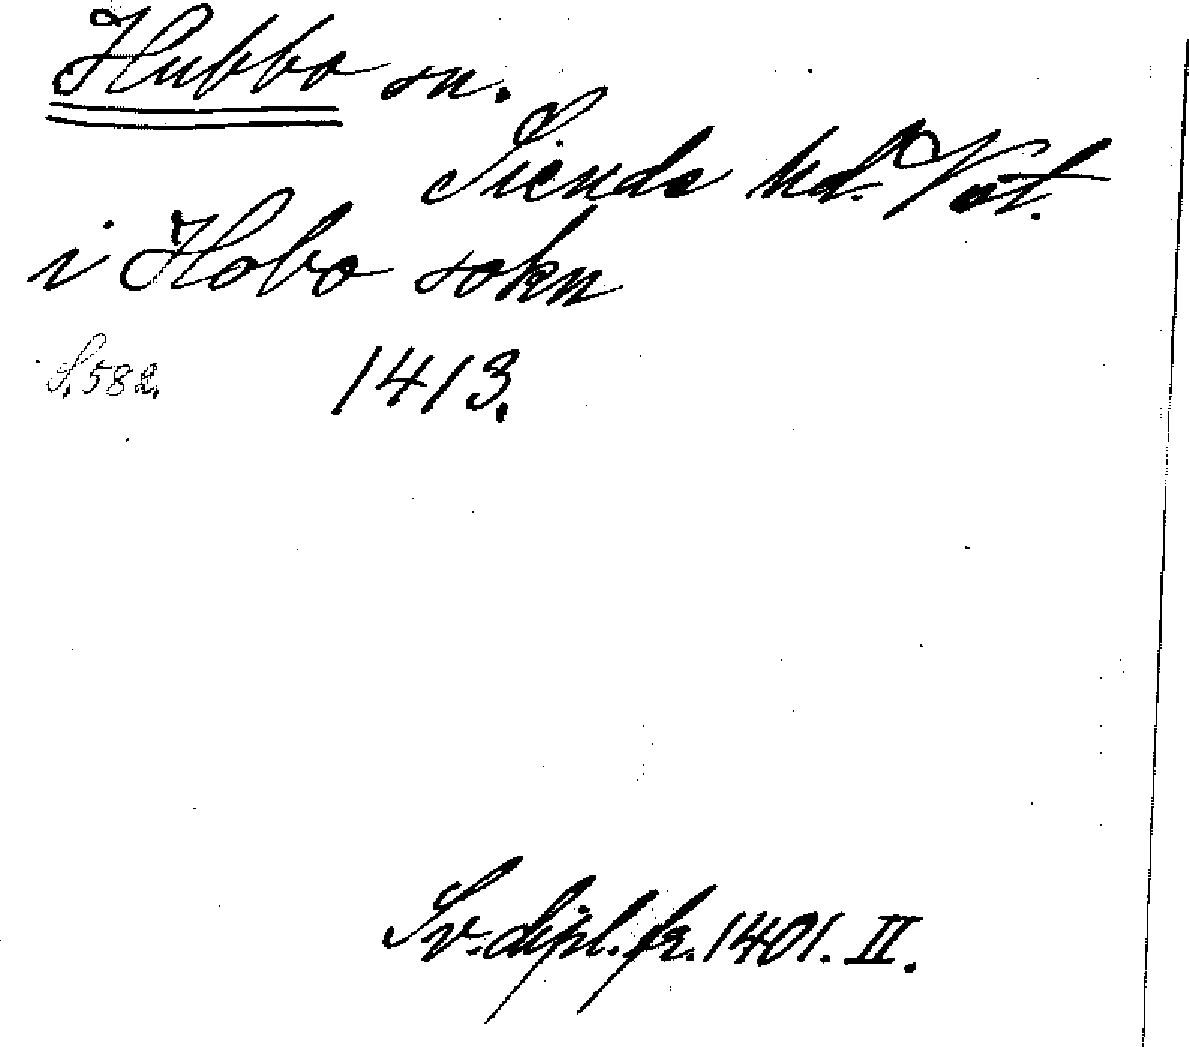 Hubbo sn.
Siende hd. Vstm.
i Hobo sokn
S. 582. 1413.
Sv. dipl. fr. 1401. II.